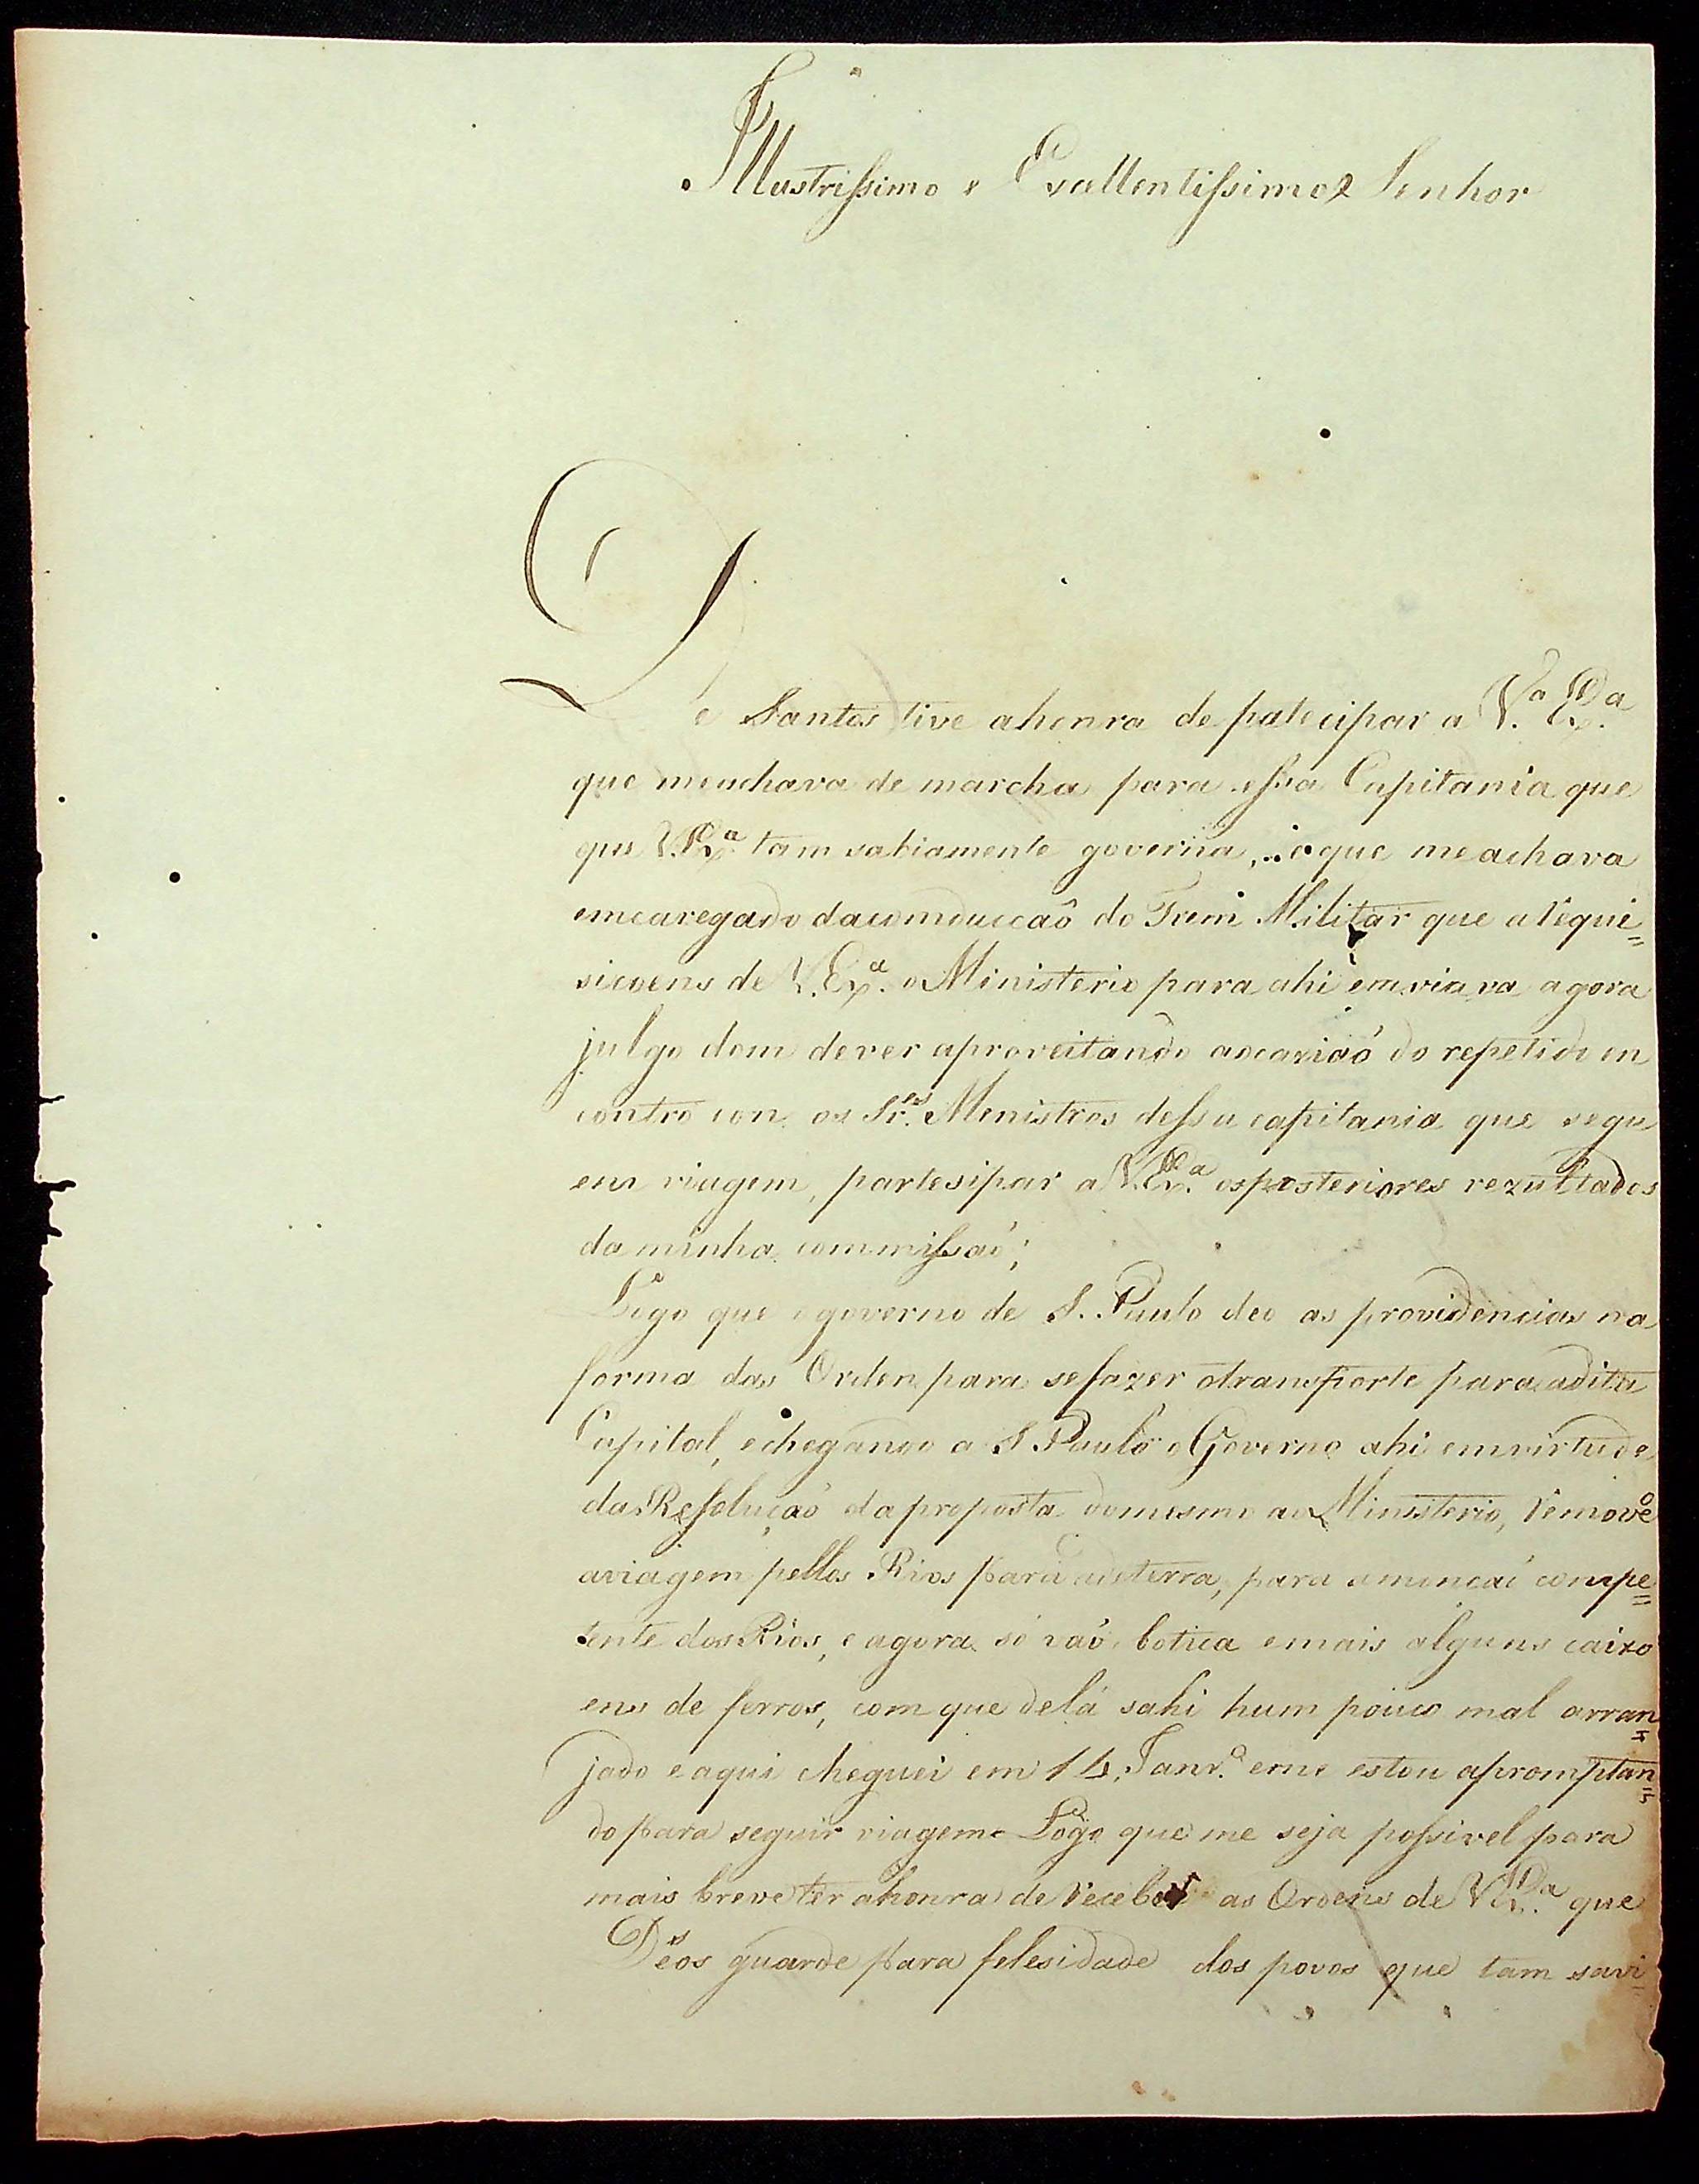 Illustrissimo e Excellentissimo Senhor
De Santos tive ahonra de patecipar a V.ª Ex.ª
que meachava de marcha para essa Capitania que
que V.Ex.ª tam sabiamente governa, e que me achava
emcaregado dacomduccaô do Trem Militar que a requi=
sicoens de V.Ex.ª o Ministerio para ahi emviava agora
julgo dom dever aproveitando aocaziaõ do repetido en
contro con os Sr.es Menistros dessa capitania que segu
em viagem, partesipar a V.Ex.ª osposteriores rezultados
da minha commissaõ;
Logo que ogoverno de S. Paulo deo as providencias na
forma das Orden para sefazer otransporte para adita
Capital, echegando a S. Paulo o Governo ahi emvirtude
da Resoluçaõ da proposta domesmo ao Ministerio, remove
aviagem pellos Rios para aditerra, para a moncaõ compe=
tente dos Rios, e agora só vaõ botica emais alguns caixo
ens de ferros, com que delá sahi hum pouco mal arran=
jado e aqui cheguei em 14 Janr.º eme estou apromptan=
do para seguir viagem Logo que me seja possivel para
mais breve ter ahonra de receber as Ordens de V.Ex.ª que
Deos guarde para felesidade dos povos que tam savi=